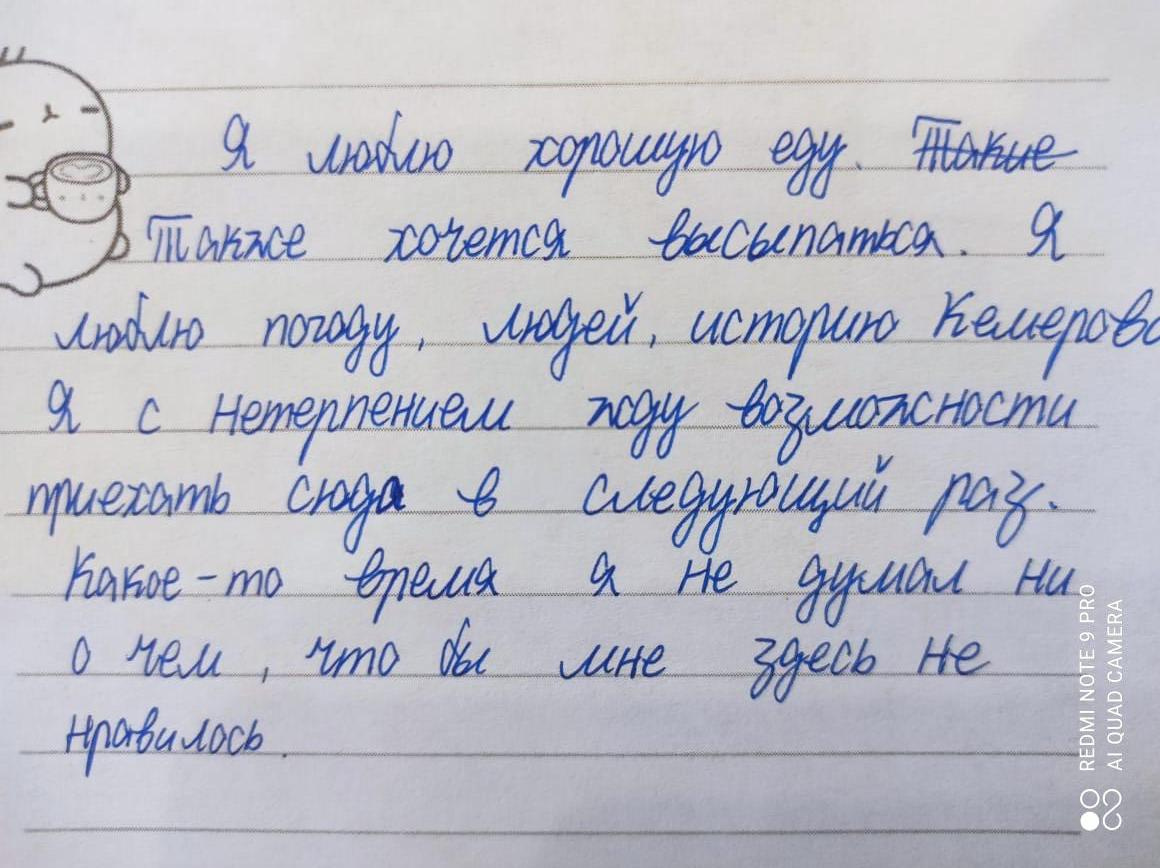 Я люблю хорошую еду. Такие
Также хочется высыпаться. Я
люблю погоду, людей, историю Кемерово
Я с нетерпением жду возможности
приехать сюда в следующий раз.
Какое-то время я не думал ни
о чем, что бы мне здесь не
нравилось.
REDMI NOTE 9 PRO
AI QUAD CAMERA